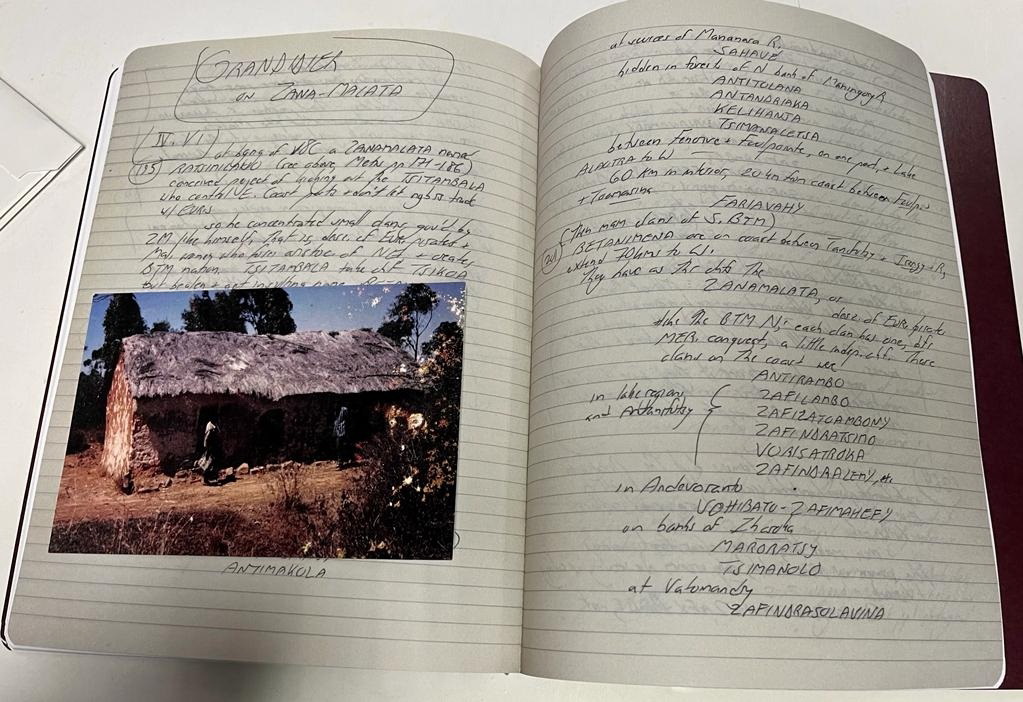 GRANDIDIER
ON ZANA-MALATA
IV. VI
(135) at bgng of
a ZANAMALATA name
RATSIMILAHO (see above, Mems pp 174-186)
conceived project of
out the TSITAMBALA
who control NE. Coast ports + don't let
trade
w/ EURS
so he concentrated small clans gov'd by
ZM like himself, that is, desc. of Eur. pirates +
+ create
BTM nation. TSITAMBALA
chf TSIKOA
but beaten + get insulting name
ANTIMAKOLA
at sources of Mananara R.
SAHAVE
hidden in forests of N bank of Maningory R
ANTITOLANA
ANTANDRIAKA
KELIHANJA
TSIMANALETSA
between Fenerive + Foulpointe, on one part, + Lake
ALAOTRA to W
60 Km in interior, 20 km from coast between Foulp.
+ Toamasina
FARIAVAHY
(Then main clans of S. BTM)
(201) BETANIMENA are on coast between
R,
extend 70kms to W.
They have as the chfs the
ZANAMALATA, or
desc of Eur. pirate
like the BTM N; each clan has one, bfr
MER. conquest, a little indep. chf. These
clans on the coast were
ANTIRAMBO
in lake region ZAFILAMBO
and
ZAFIZATOAMBONY
ZAFINDRATSIMO
VORISATROKA
ZAFINDRALENY, etc
in Andevoranto
VOHIBATO-ZAFIMAHEFY
on banks of Iharoka
MARORATSY
TSIMANOLO
at Vatomandry
ZAFINDRASOLAVINA